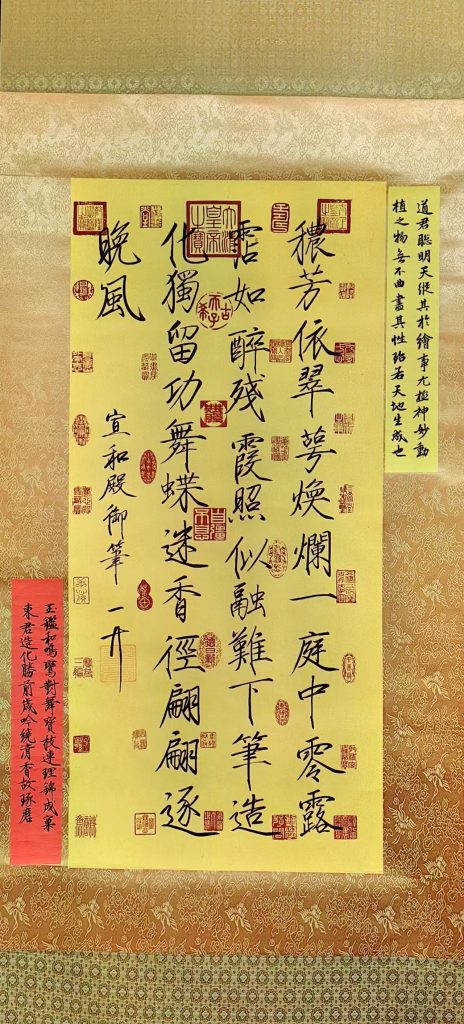 道君聰明天縱其於繪事尤極神妙動
植之物無不曲盡其性殆若天地生成也
穠芳依翠萼煥爛一庭中零露
霑如醉殘霞照似融難下筆造
化獨留功舞蝶迷香徑翩翩逐
晚風
宣和殿御筆
玉鑑和鳴鸞對舞寶枝連理錦成窠
東君造化勝前歲吟繞清香故琢磨
古希天子
自彊不息